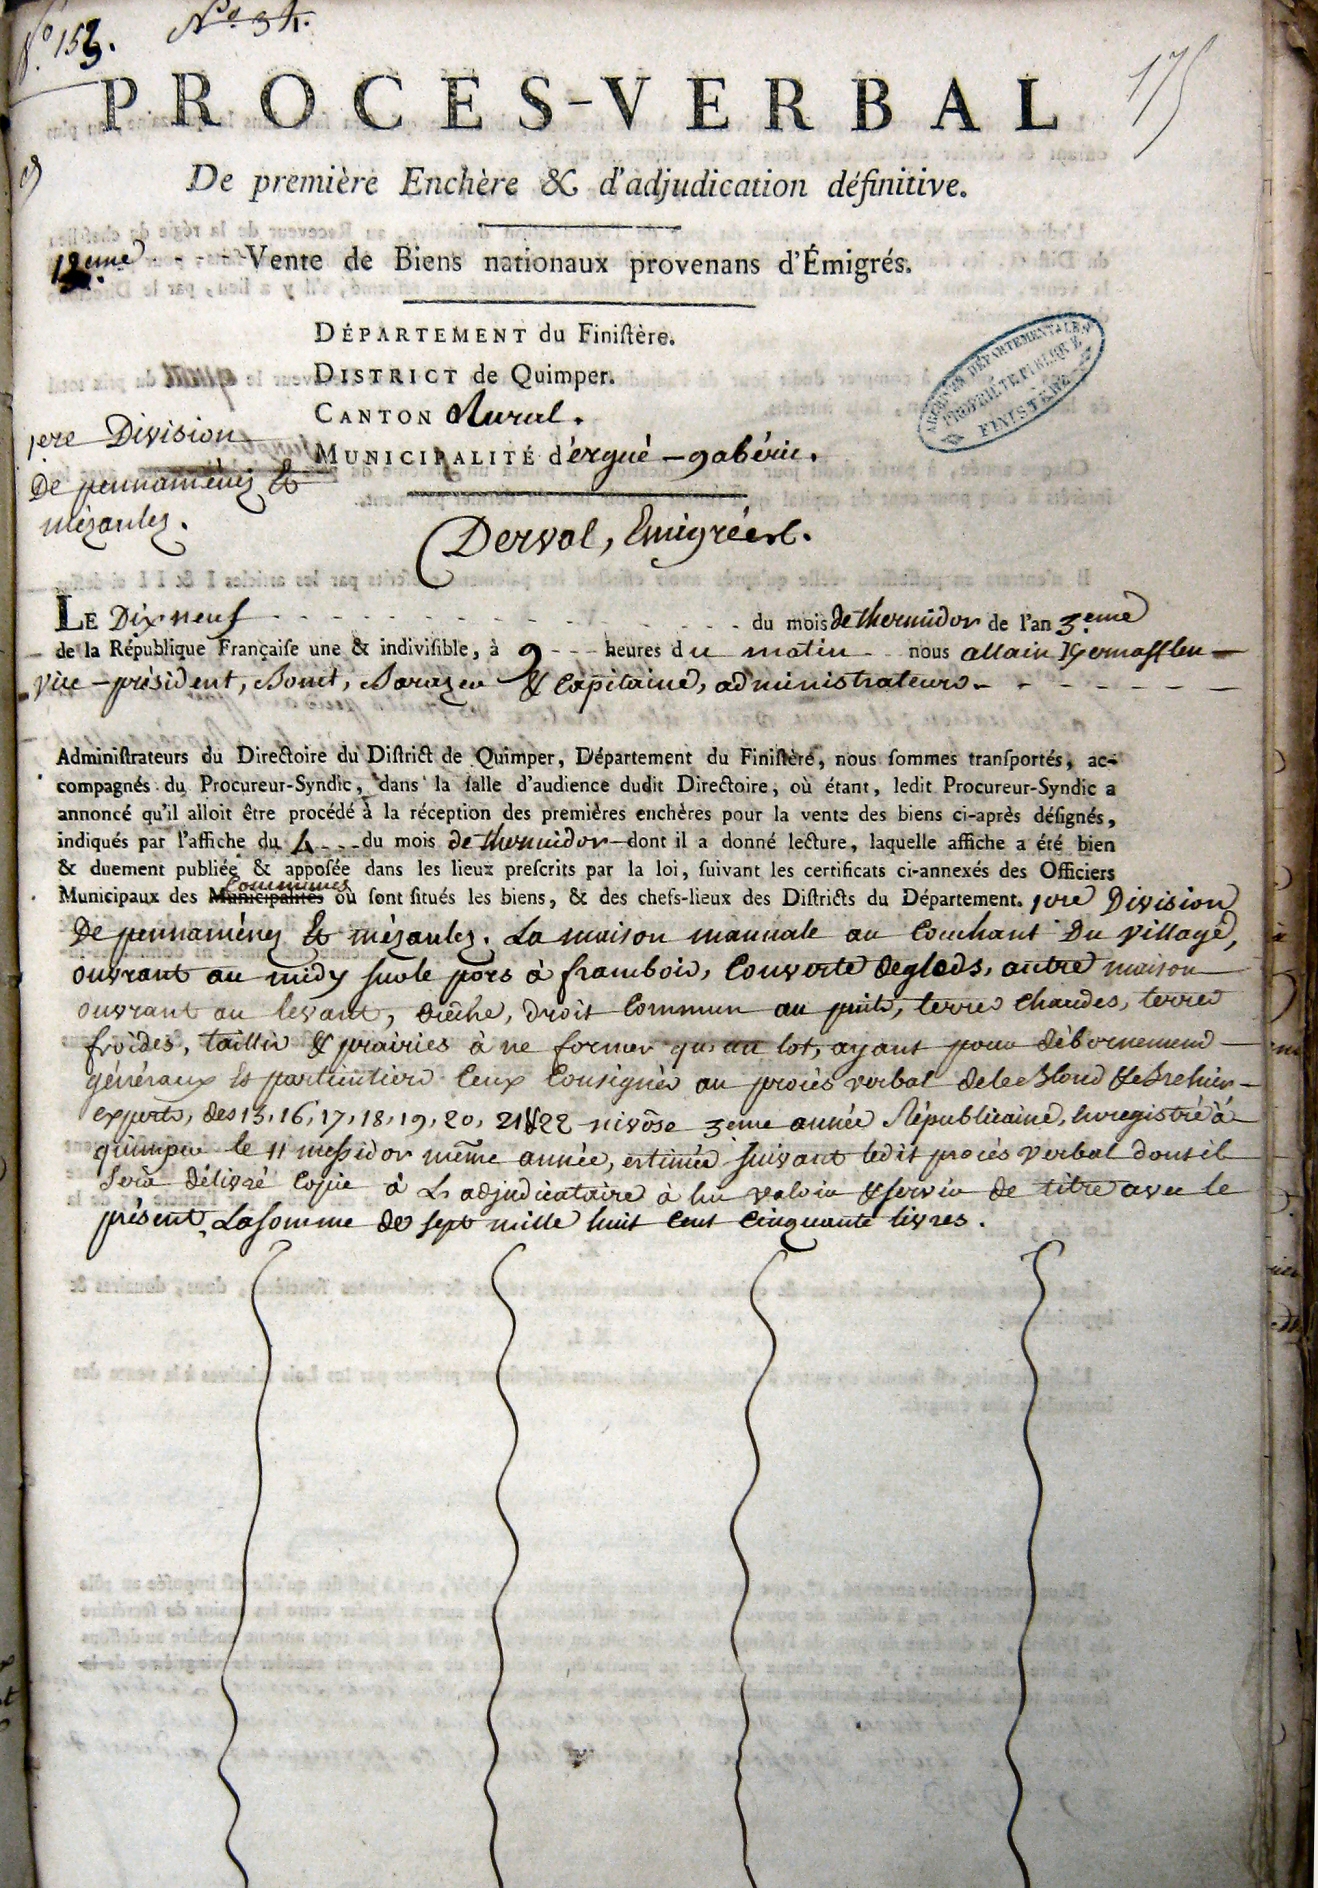 N.º 153. N.º 34.
175
PROCES-VERBAL
De première Enchère & d'adjudication définitive.
18eme - - - - Vente de Biens nationaux provenans d'Émigrés.
DÉPARTEMENT du Finiſtère.
DISTRICT de Quimper.
CANTON Rural.
MUNICIPALITÉ d'érgué - gabéric.
1ere Division
De pennaménez &
mézanlez.
ARCHIVES DÉPARTEMENTALES
PROPRIÉTÉ PUBLIQUE
FINISTÈRE
Derval, Emigréerl.
LE Dix neuf - - - - du mois de thermidor de l'an 3.eme
de la République Françaiſe une & indiviſible, à 9 - - - heures du matin - - nous allain
vice - président, Bonit, & Capitaine, administrateurs. - - - -
Adminiſtrateurs du Directoire du Diſtrict de Quimper, Département du Finiſtère, nous ſommes tranſportés, ac-
compagnés du Procureur-Syndic, dans la ſalle d'audience dudit Directoire, où étant, ledit Procureur-Syndic a
annoncé qu'il alloit être procédé à la réception des premières enchères pour la vente des biens ci-après déſignés,
indiqués par l'affiche du 4 - - - du mois de thermidor - dont il a donné lecture, laquelle affiche a été bien
& duement publiée & appoſée dans les lieux preſcrits par la loi, ſuivant les certificats ci-annexés des Officiers
communes
Municipaux des Municipalités où ſont ſitués les biens, & des chefs-lieux des Diſtricts du Département. 1ere Division
De pennaménez & mézanlez. La maison mannale au Couchant Du village,
ouvrant au midy sur le pors à framboid, Couverte de gleds, autre maison
ouvrant au levant, crêche, droit Commun au puits, terres chaudes, terres
froides, taillis & prairies à ne former qu'un lot, ayant pour débornemens
généraux & particuliers Ceux Consignés au procès verbal de le Blond & le Brehier
experts, des 15, 16, 17, 18, 19, 20, 21 & 22 nivôse 3eme année Républicaine, Enregistré à
quimper le 11 messidor même année, estimée suivant ledit procès verbal dont il
sera délivré Copie à L'adjudicataire à lui valoir & servir de titre avec le
présent, La somme de sept mille huit Cent Cinquante livres.